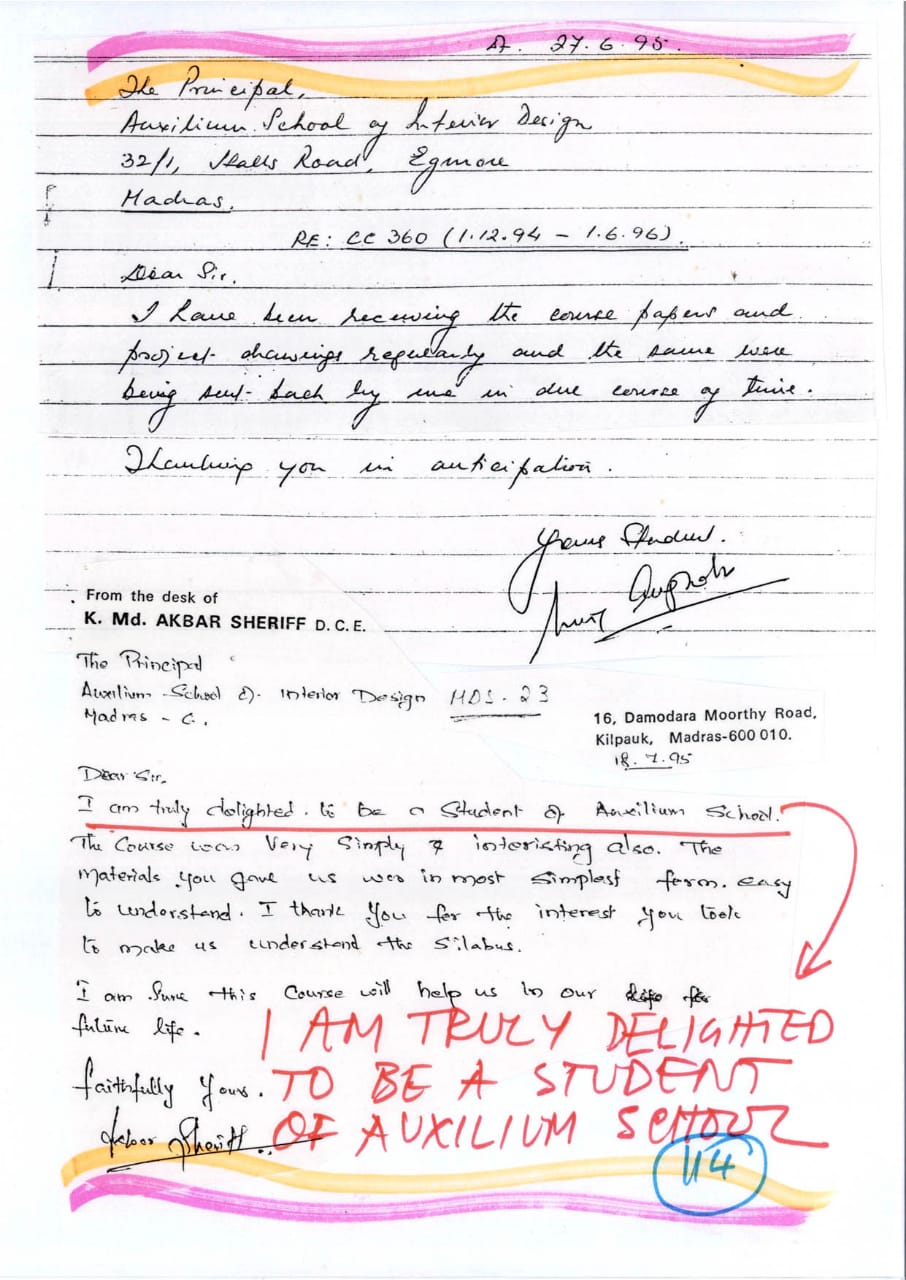 Dt. 27.6.95.
The Principal,
Auxilium School of Interior Design
32/1, Halls Road, Egmore
Madras.
RE: CC 360 (1.12.94 – 1.6.96).
Dear Sir.
I have been receiving the course papers and
project drawings regularly and the same were
being sent back by me in due course of time.
Thanking you in anticipation.
Yours Student.
From the desk of
K. Md. AKBAR SHERIFF D.C.E.
The Principal
Auxilium School of Interior Design MDS. 23
Madras – 6.
16, Damodara Moorthy Road,
Kilpauk, Madras-600 010.
18.7.95
Dear Sir,
I am truly delighted. to be a Student of Auxilium School.
The Course was Very Simply & interisting also. The
materials you gave us was in most simplest form. easy
to understand. I thank you for the interest you took
to make us understand the silabus.
I am Sure this Course will help us in our life for
future life.
I AM TRULY DELIGHTED
TO BE A STUDENT
OF AUXILIUM SCHOOL
faithfully yours.
Akbar Sheriff
114